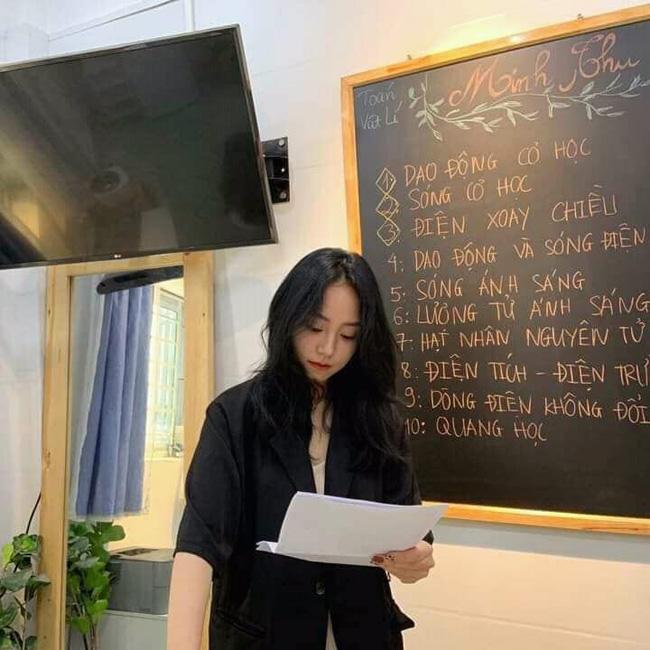 Minh Thu
Toán
Vật Lí
1: DAO ĐỘNG CƠ HỌC
2: SÓNG CƠ HỌC
3: ĐIỆN XOAY CHIỀU
4: DAO ĐỘNG VÀ SÓNG ĐIỆN
5: SÓNG ÁNH SÁNG
6: LƯỢNG TỬ ÁNH SÁNG
7: HẠT NHÂN NGUYÊN TỬ
8: ĐIỆN TÍCH - ĐIỆN TRƯ
9: DÒNG ĐIỆN KHÔNG ĐỔI
10: QUANG HỌC
LG